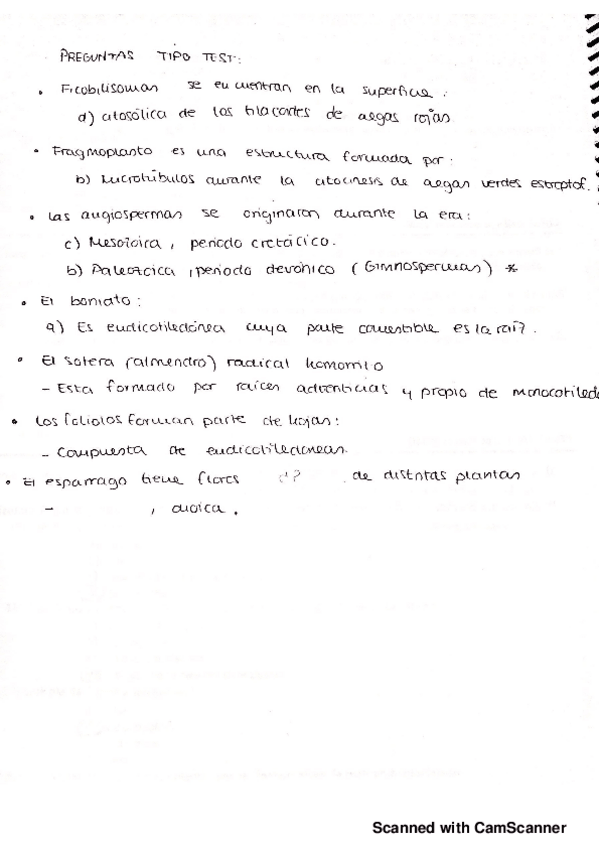 PREGUNTAS TIPO TEST:
• Ficobilisomas se encuentran en la superficie:
a) citosólica de los tilacoides de algas rojas
• Fragmoplasto es una estructura formada por:
b) Microtúbulos durante la citocinesis de algas verdes estreptof.
• Las angiospermas se originaron durante la era:
c) Mesozoica, periodo cretácico.
b) Paleozoica, periodo devónico (Gimnospermas) *
• El boniato:
a) Es eudicotiledónea cuya parte comestible es la raíz.
• El (almendro) radical homorrizo
- Esta formado por raíces adventicias y propio de monocotiled
• Los foliolos forman parte de hojas:
- Compuesta de eudicotiledóneas.
• El esparrago tiene flores ♂? de distintas plantas
- , dioica.
Scanned with CamScanner